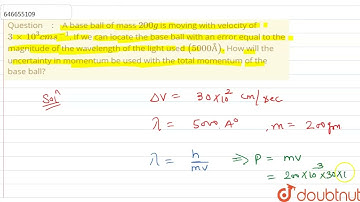 646655109
Question : A base ball of mass 200g is moving with velocity of
3 × 10³cms⁻¹. If we can locate the base ball with an error equal to the
magnitude of the wavelength of the light used (5000Å), How will the
uncertainty in momentum be used with the total momentum of the
base ball?
Solⁿ
ΔV = 30×10² cm/sec
λ = 5000 A° , m = 200gm
λ = h/mv ⇒ P = mv
= 200×10⁻³×30×1
doubtnut